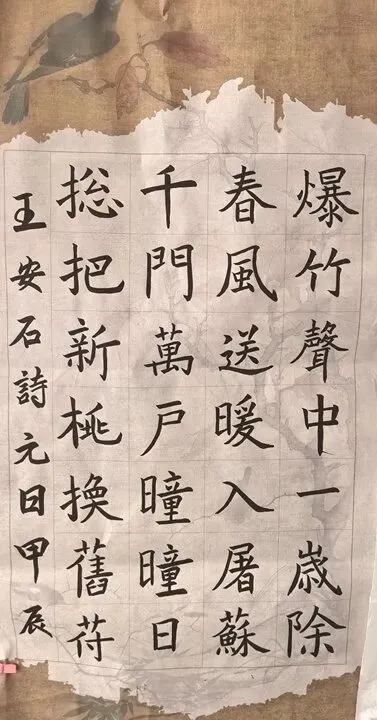 爆竹聲中一歲除
春風送暖入屠蘇
千門萬戶曈曈日
揔把新桃換舊苻
王安石詩元日甲辰